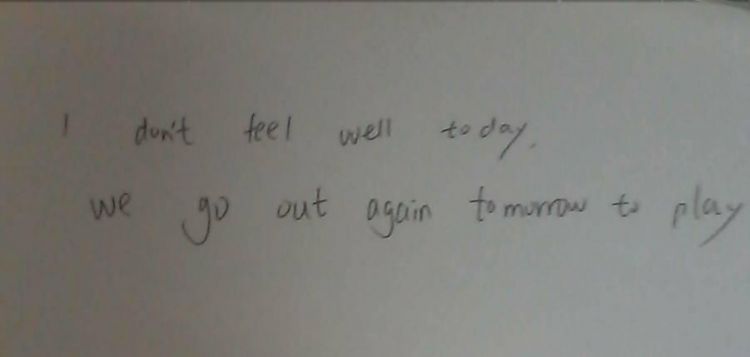 I don't feel well today.
we go out again tomorrow to play